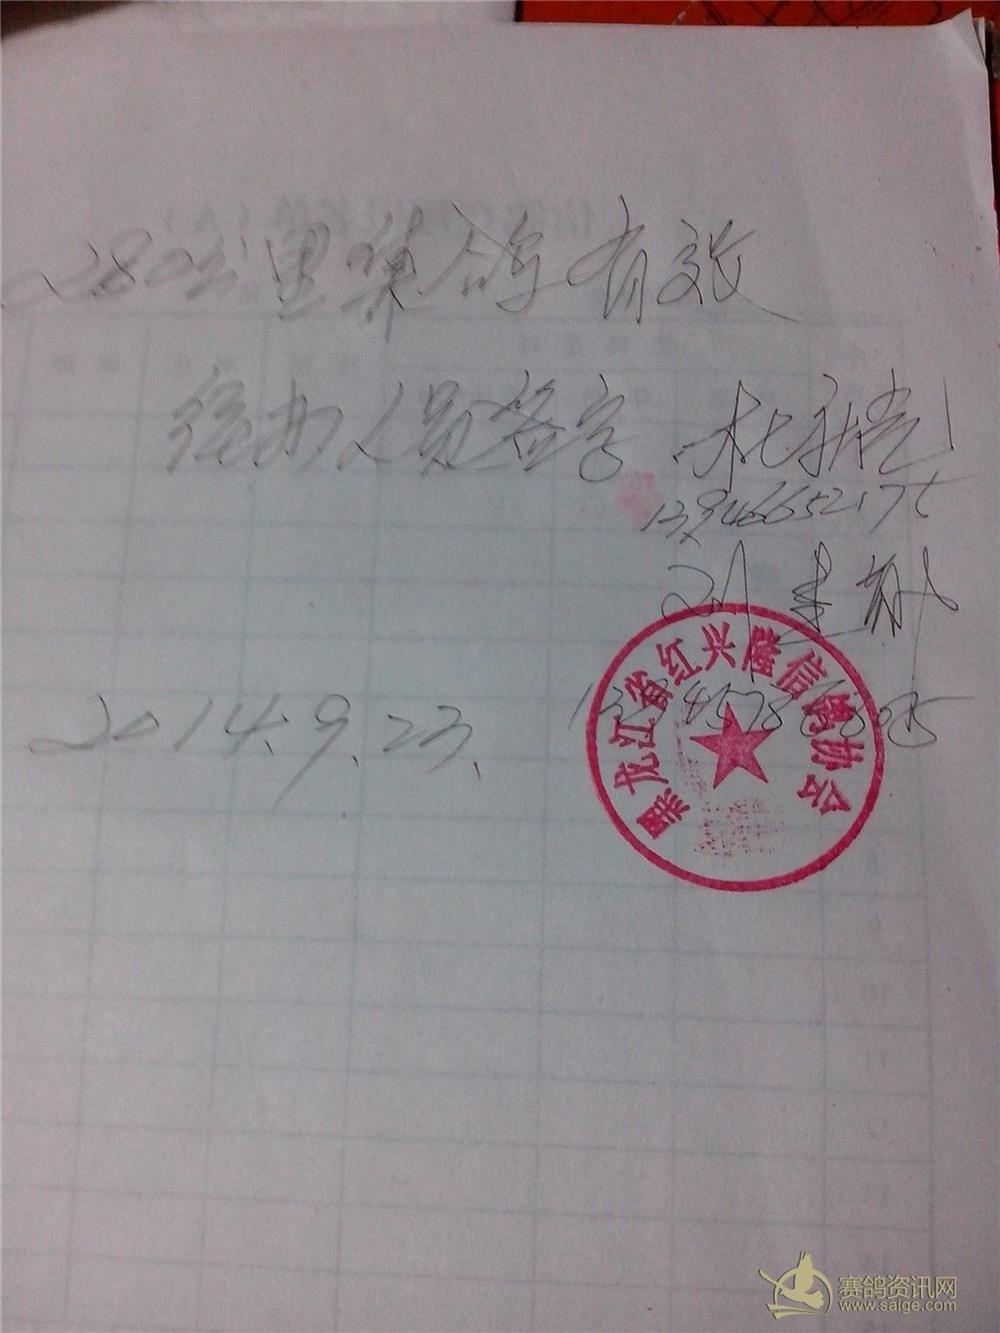 280公里集鸽有效
经办人员签字 杜新
13946652175
刘
2014.9.23.
黑龙江省红兴隆信鸽协会
赛鸽资讯网
www.saige.com